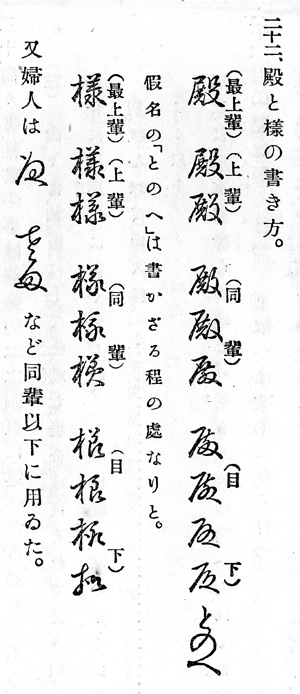 二十二、殿と樣の書き方。
(最上輩)(上輩)(同輩)(目下)
殿殿殿殿殿殿殿殿殿殿とのへ
假名の「とのへ」は書かざる程の處なりと。
(最上輩)(上輩)(同輩)(目下)
樣樣樣樣樣樣樣樣樣樣
又婦人は など同輩以下に用ゐた。